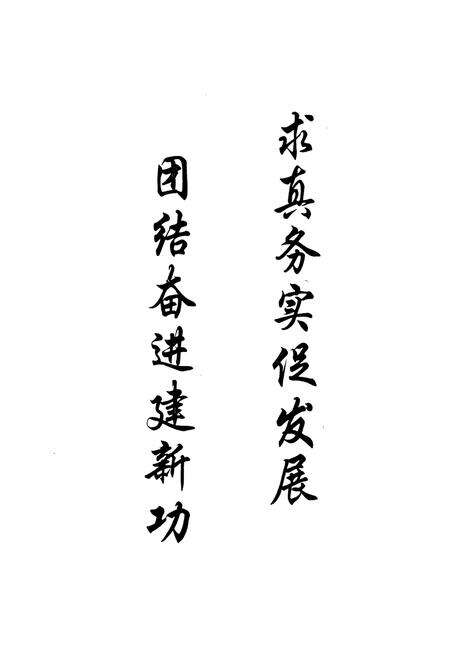 求真务实促发展
团结奋进建新功